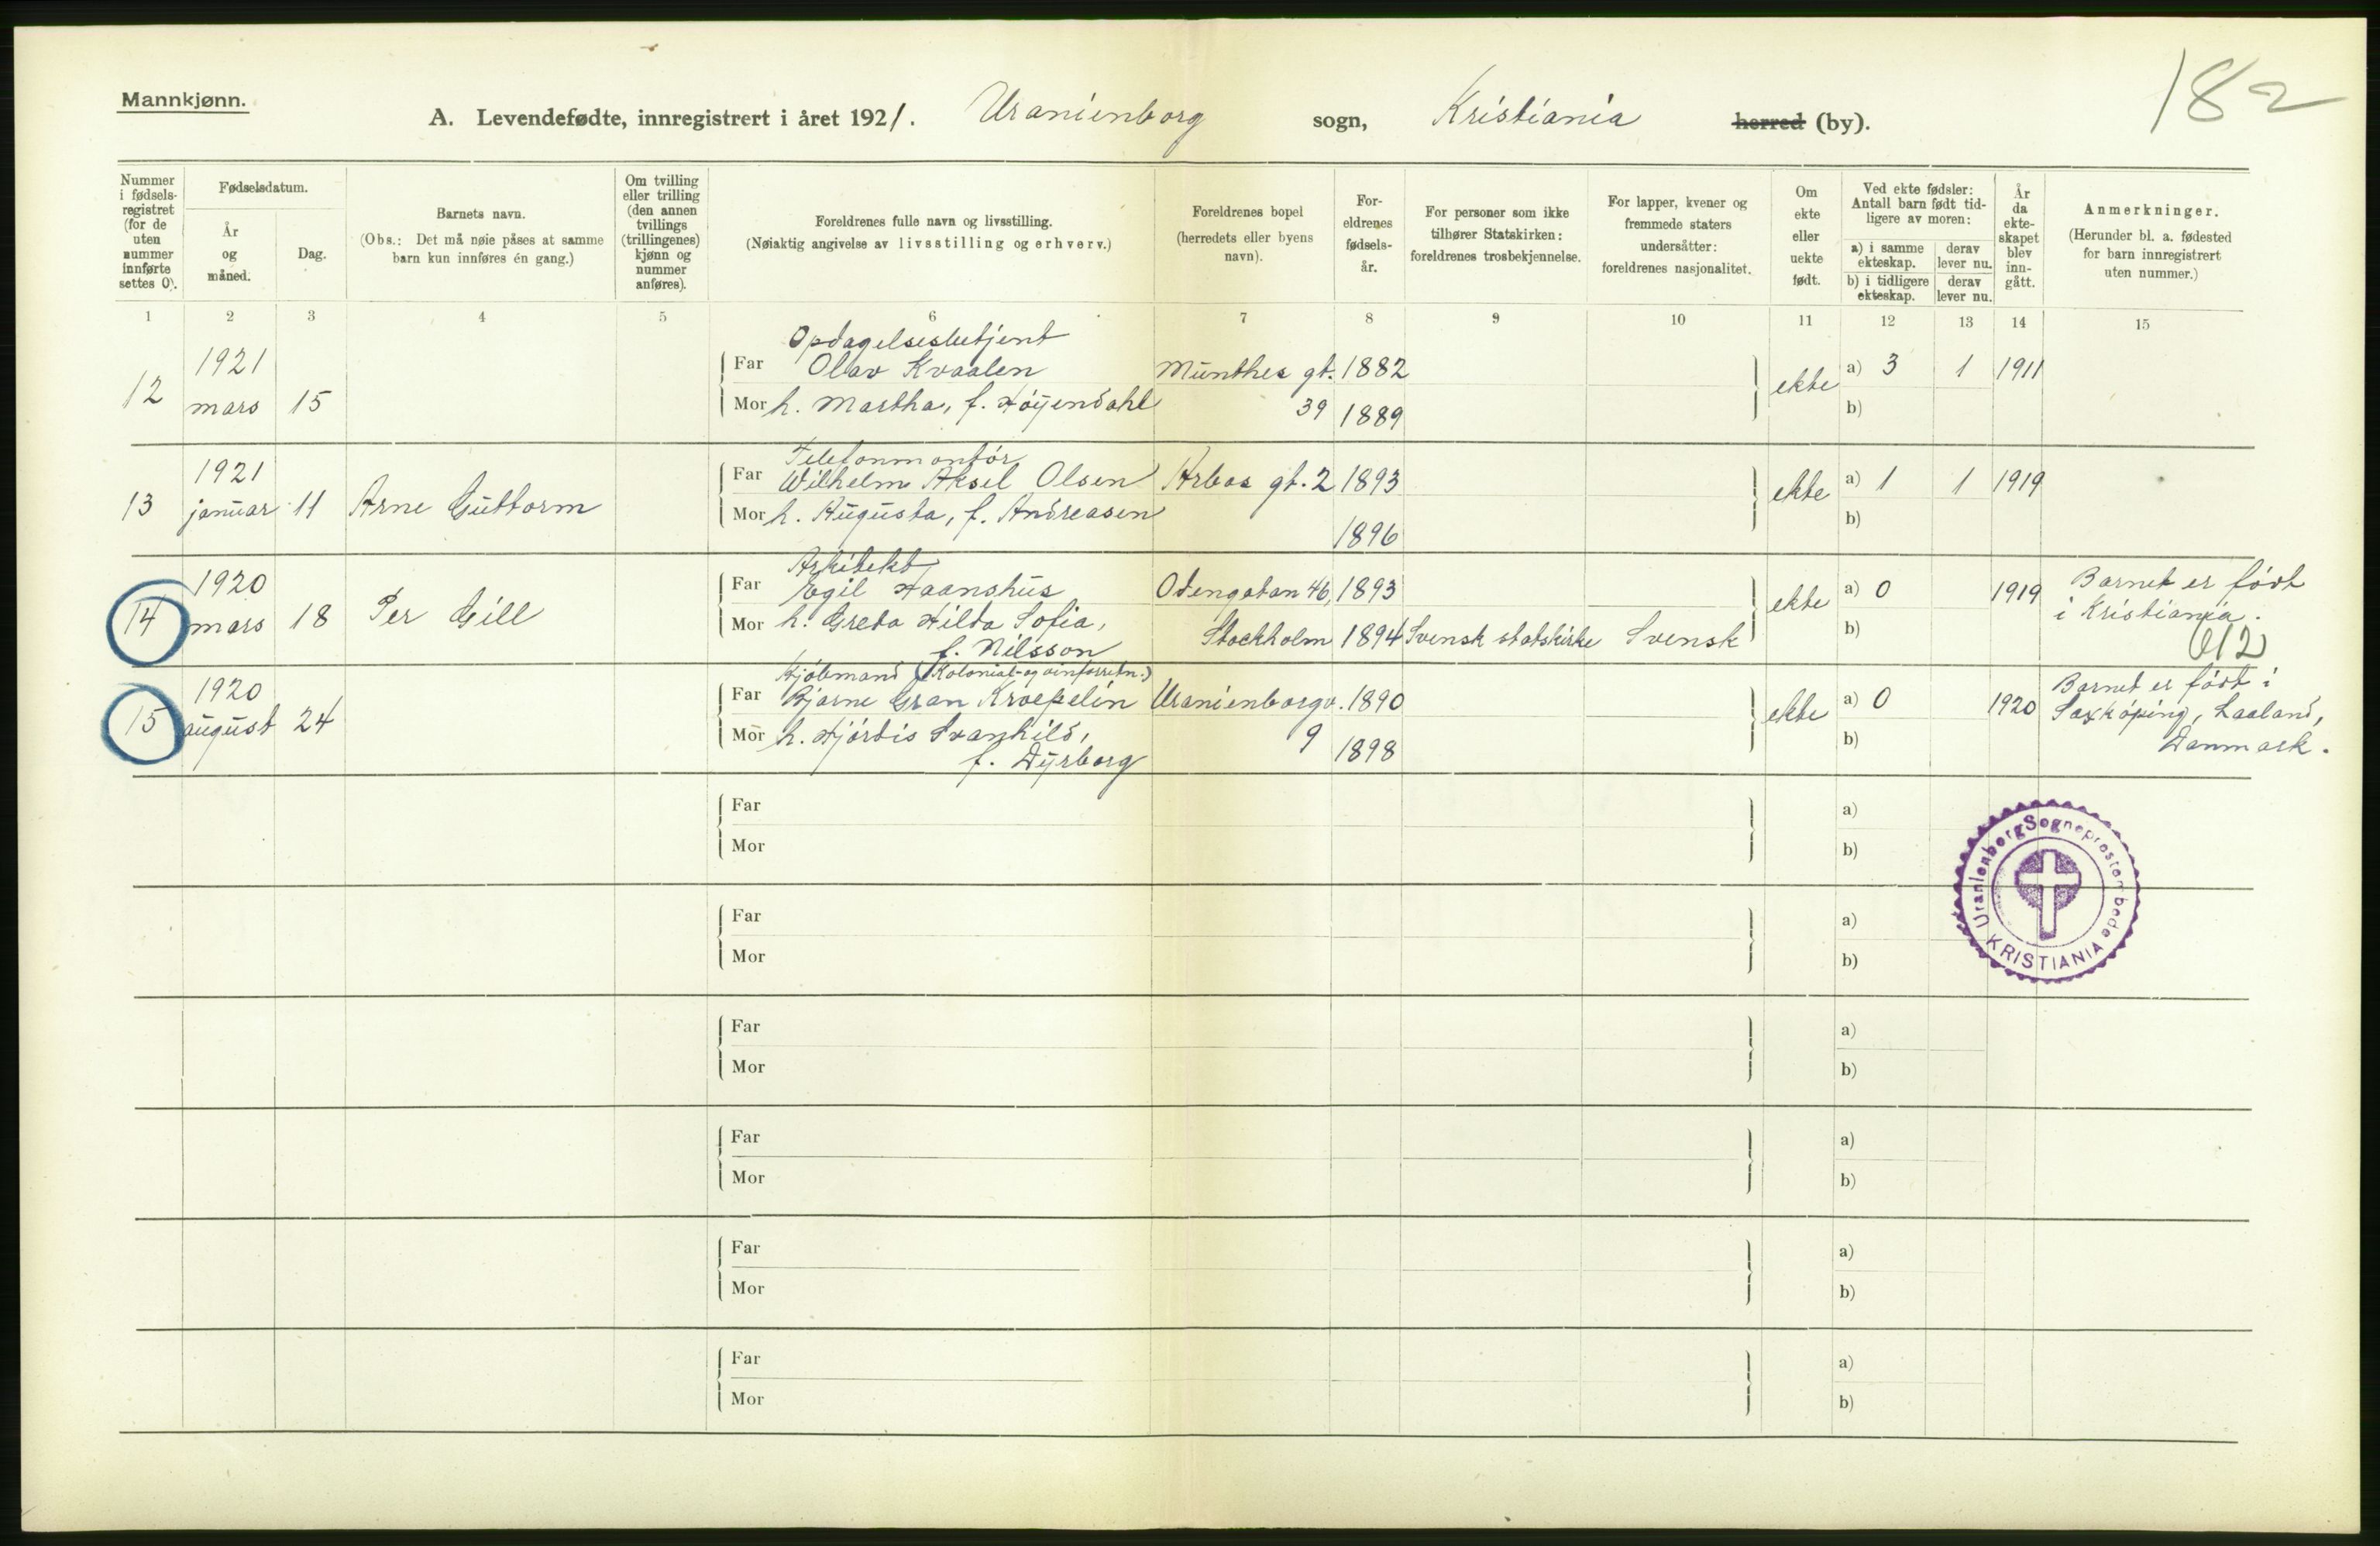 182
Mannkjønn.
A. Levendefødte, innregistrert i året 1921. Uranienborg sogn, Kristiania herred (by).
Nummer i fødselsregistret (for de uten nummer innførte settes 0).
Fødselsdatum.
År og måned.
Dag.
Barnets navn.
(Obs.: Det må nøie påses at samme barn kun innføres én gang.)
Om tvilling eller trilling (den annen tvillings (trillingenes) kjønn og nummer anføres).
Foreldrenes fulle navn og livsstilling.
(Nøiaktig angivelse av livsstilling og erhverv.)
Foreldrenes bopel (herredets eller byens navn).
Foreldrenes fødselsår.
For personer som ikke tilhører Statskirken: foreldrenes trosbekjennelse.
For lapper, kvener og fremmede staters undersåtter: foreldrenes nasjonalitet.
Om ekte eller uekte født.
Ved ekte fødsler: Antall barn født tidligere av moren:
a) i samme ekteskap. derav lever nu.
b) i tidligere ekteskap. derav lever nu.
År da ekteskapet blev inngått.
Anmerkninger.
(Herunder bl. a. fødested for barn innregistrert uten nummer.)
1 2 3 4 5 6 7 8 9 10 11 12 13 14 15
Opdagelsesbetjent
12 1921 Far Olav Kvaalen Münthes gt. 1882 ekte a) 3 1 1911
mars 15 Mor h. Martha, f. Høyendahl 39 1889 b)
Telefonmontør
13 1921 Far Wilhelm Aksel Olsen Arbos gt. 2 1893 ekte a) 1 1 1919
januar 11 Arne Guttorm Mor h. Augusta, f. Andreasen 1896 b)
Arkitekt
14 1920 Far Egil Haanshus Odengatan 46, 1893 ekte a) 0 1919 Barnet er født
mars 18 Per Gill Mor h. Greta Hilda Sofia, Stockholm 1894 Svensk statskirke Svensk b) i Kristiania.
f. Nilsson
Kjøbmand (Kolonial- og vinforretn.)
15 1920 Far Bjarne Gran Kroepelin Uranienborgv. 1890 ekte a) 0 1920 Barnet er født i
august 24 Mor h. Hjørdis Svanhild, 9 1898 b) Saxkøping, Laaland,
f. Dyrborg Danmark.
Far a)
Mor b)
Far a)
Mor b)
Far a)
Mor b)
Far a)
Mor b)
Far a)
Mor b)
Far a)
Mor b)
Uranienborg Sogneprestembede
KRISTIANIA